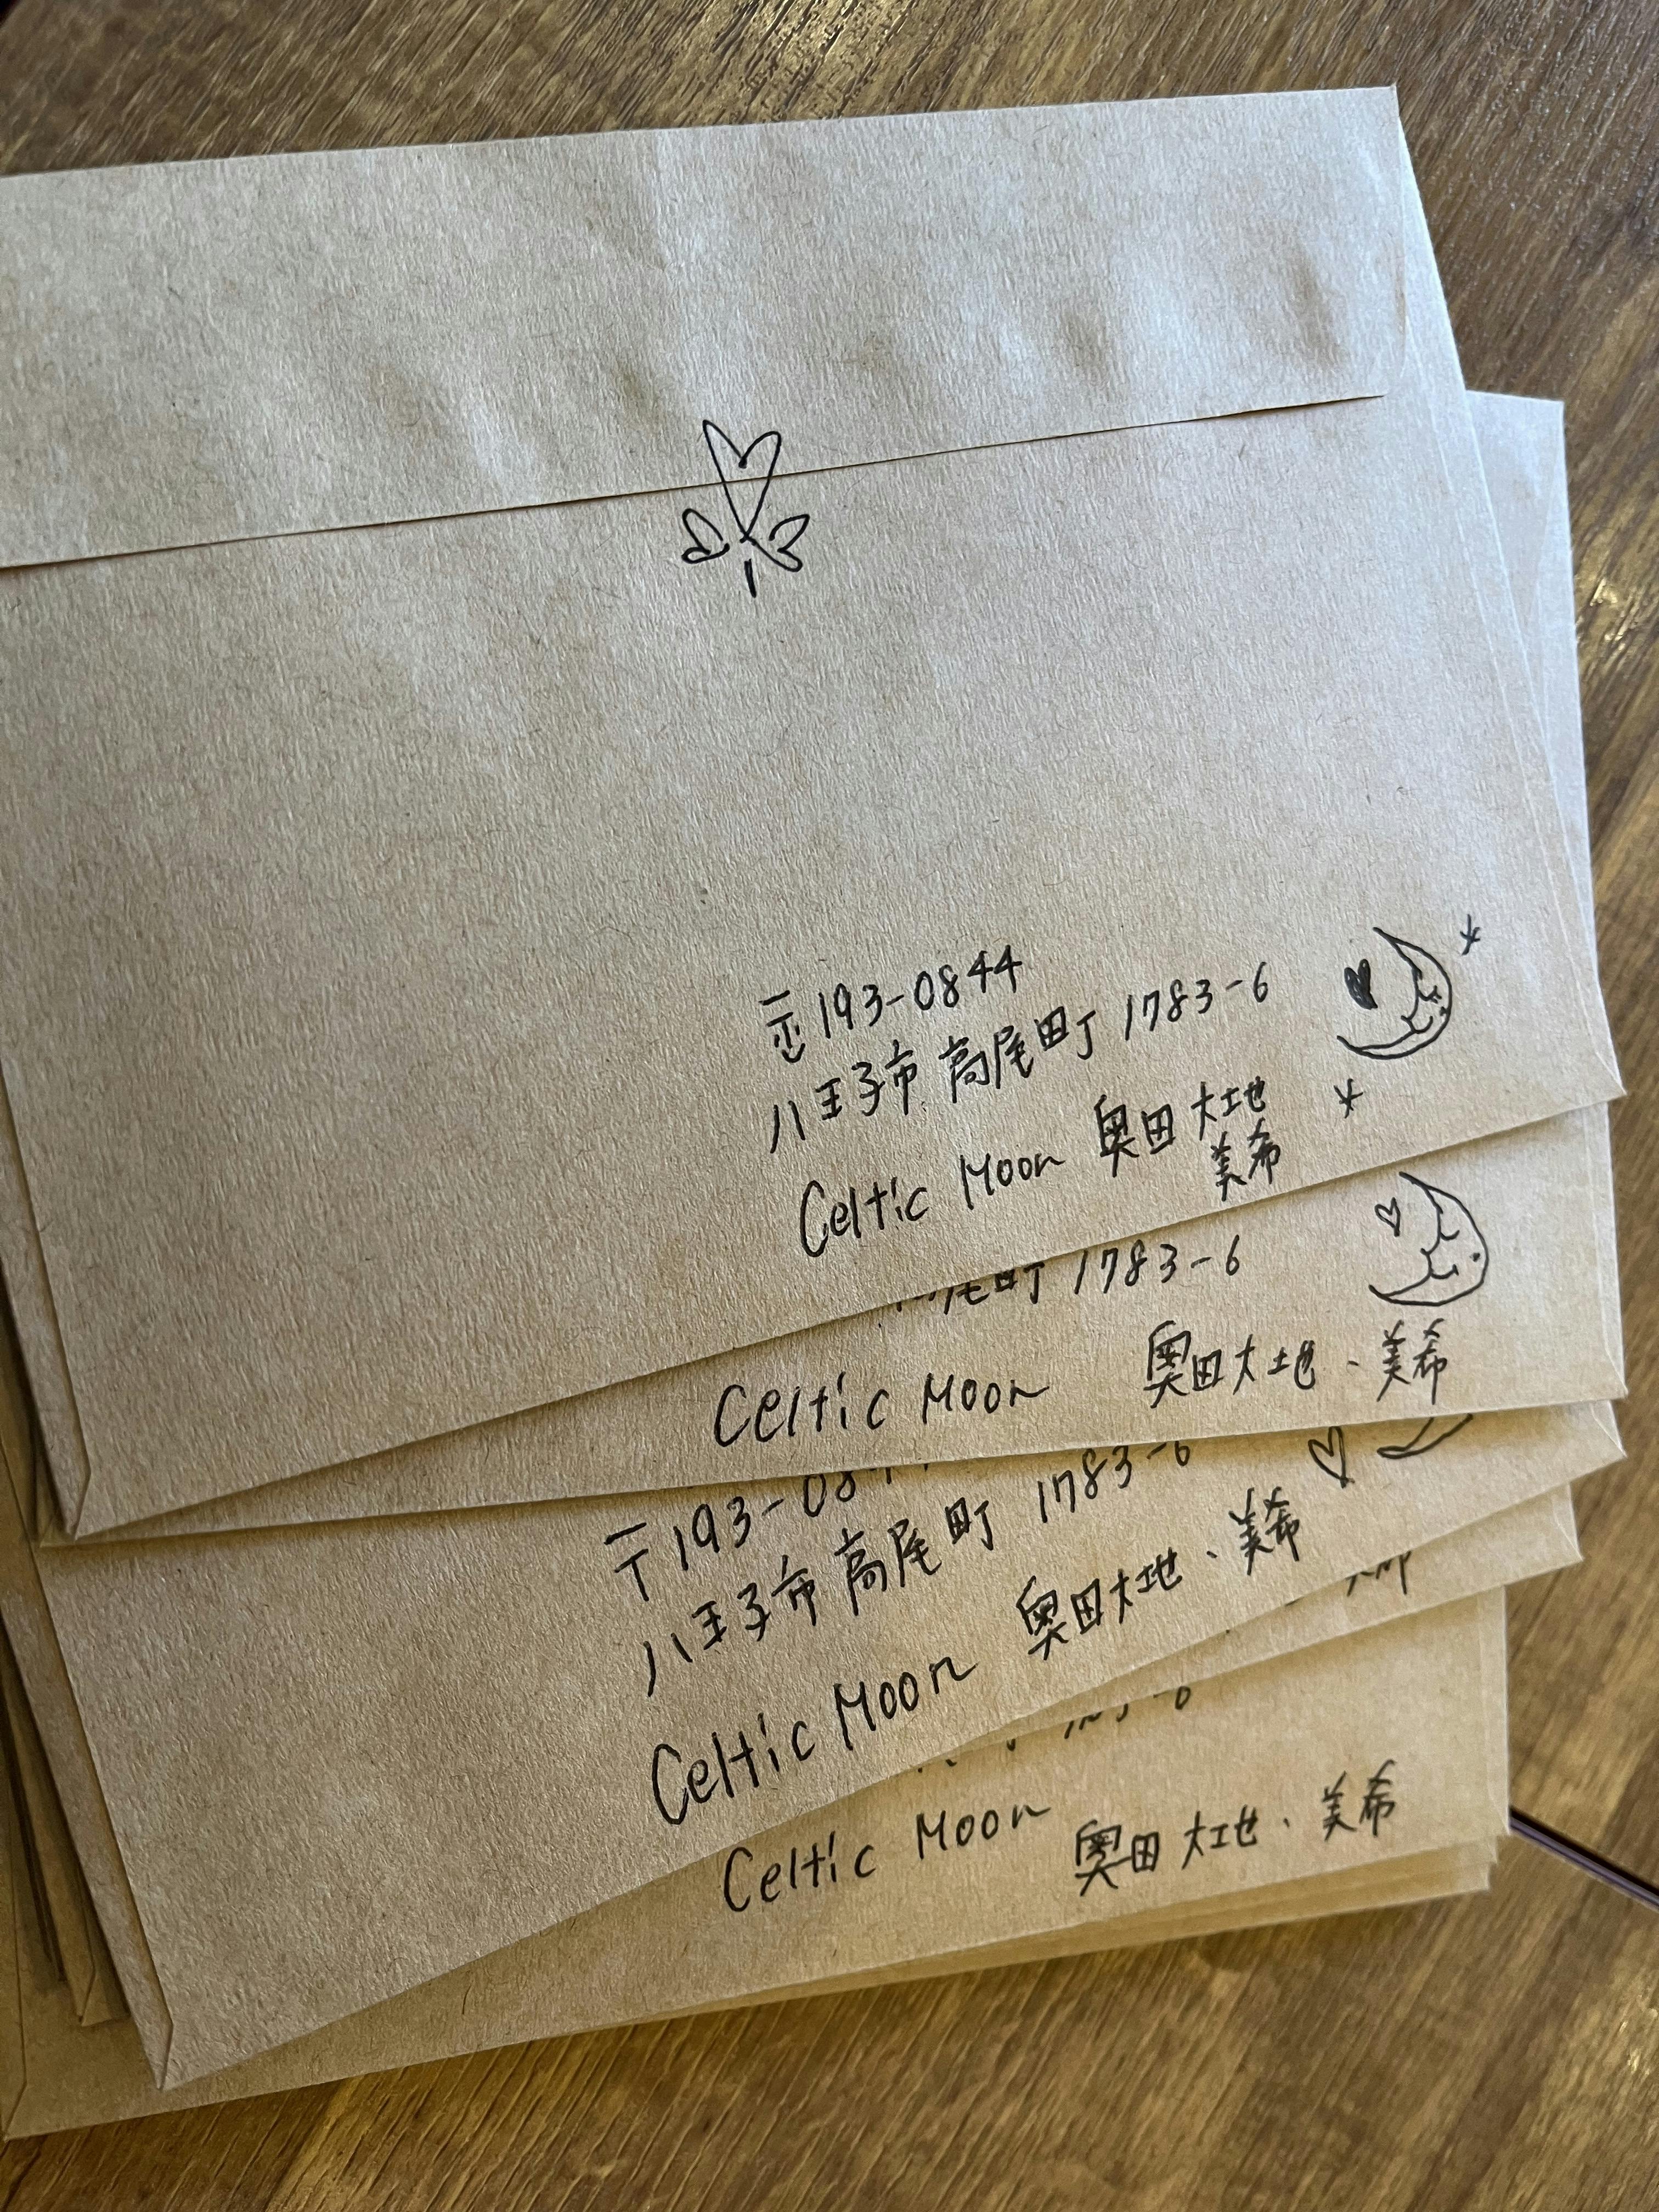 〒193-0844
八王子市高尾町 1783-6
Celtic Moon 奥田 大地
美希
尾町 1783-6
Celtic Moon 奥田大地・美希
〒193-084
八王子市高尾町 1783-6
Celtic Moon 奥田大地・美希
Celtic Moon 奥田 大地・美希